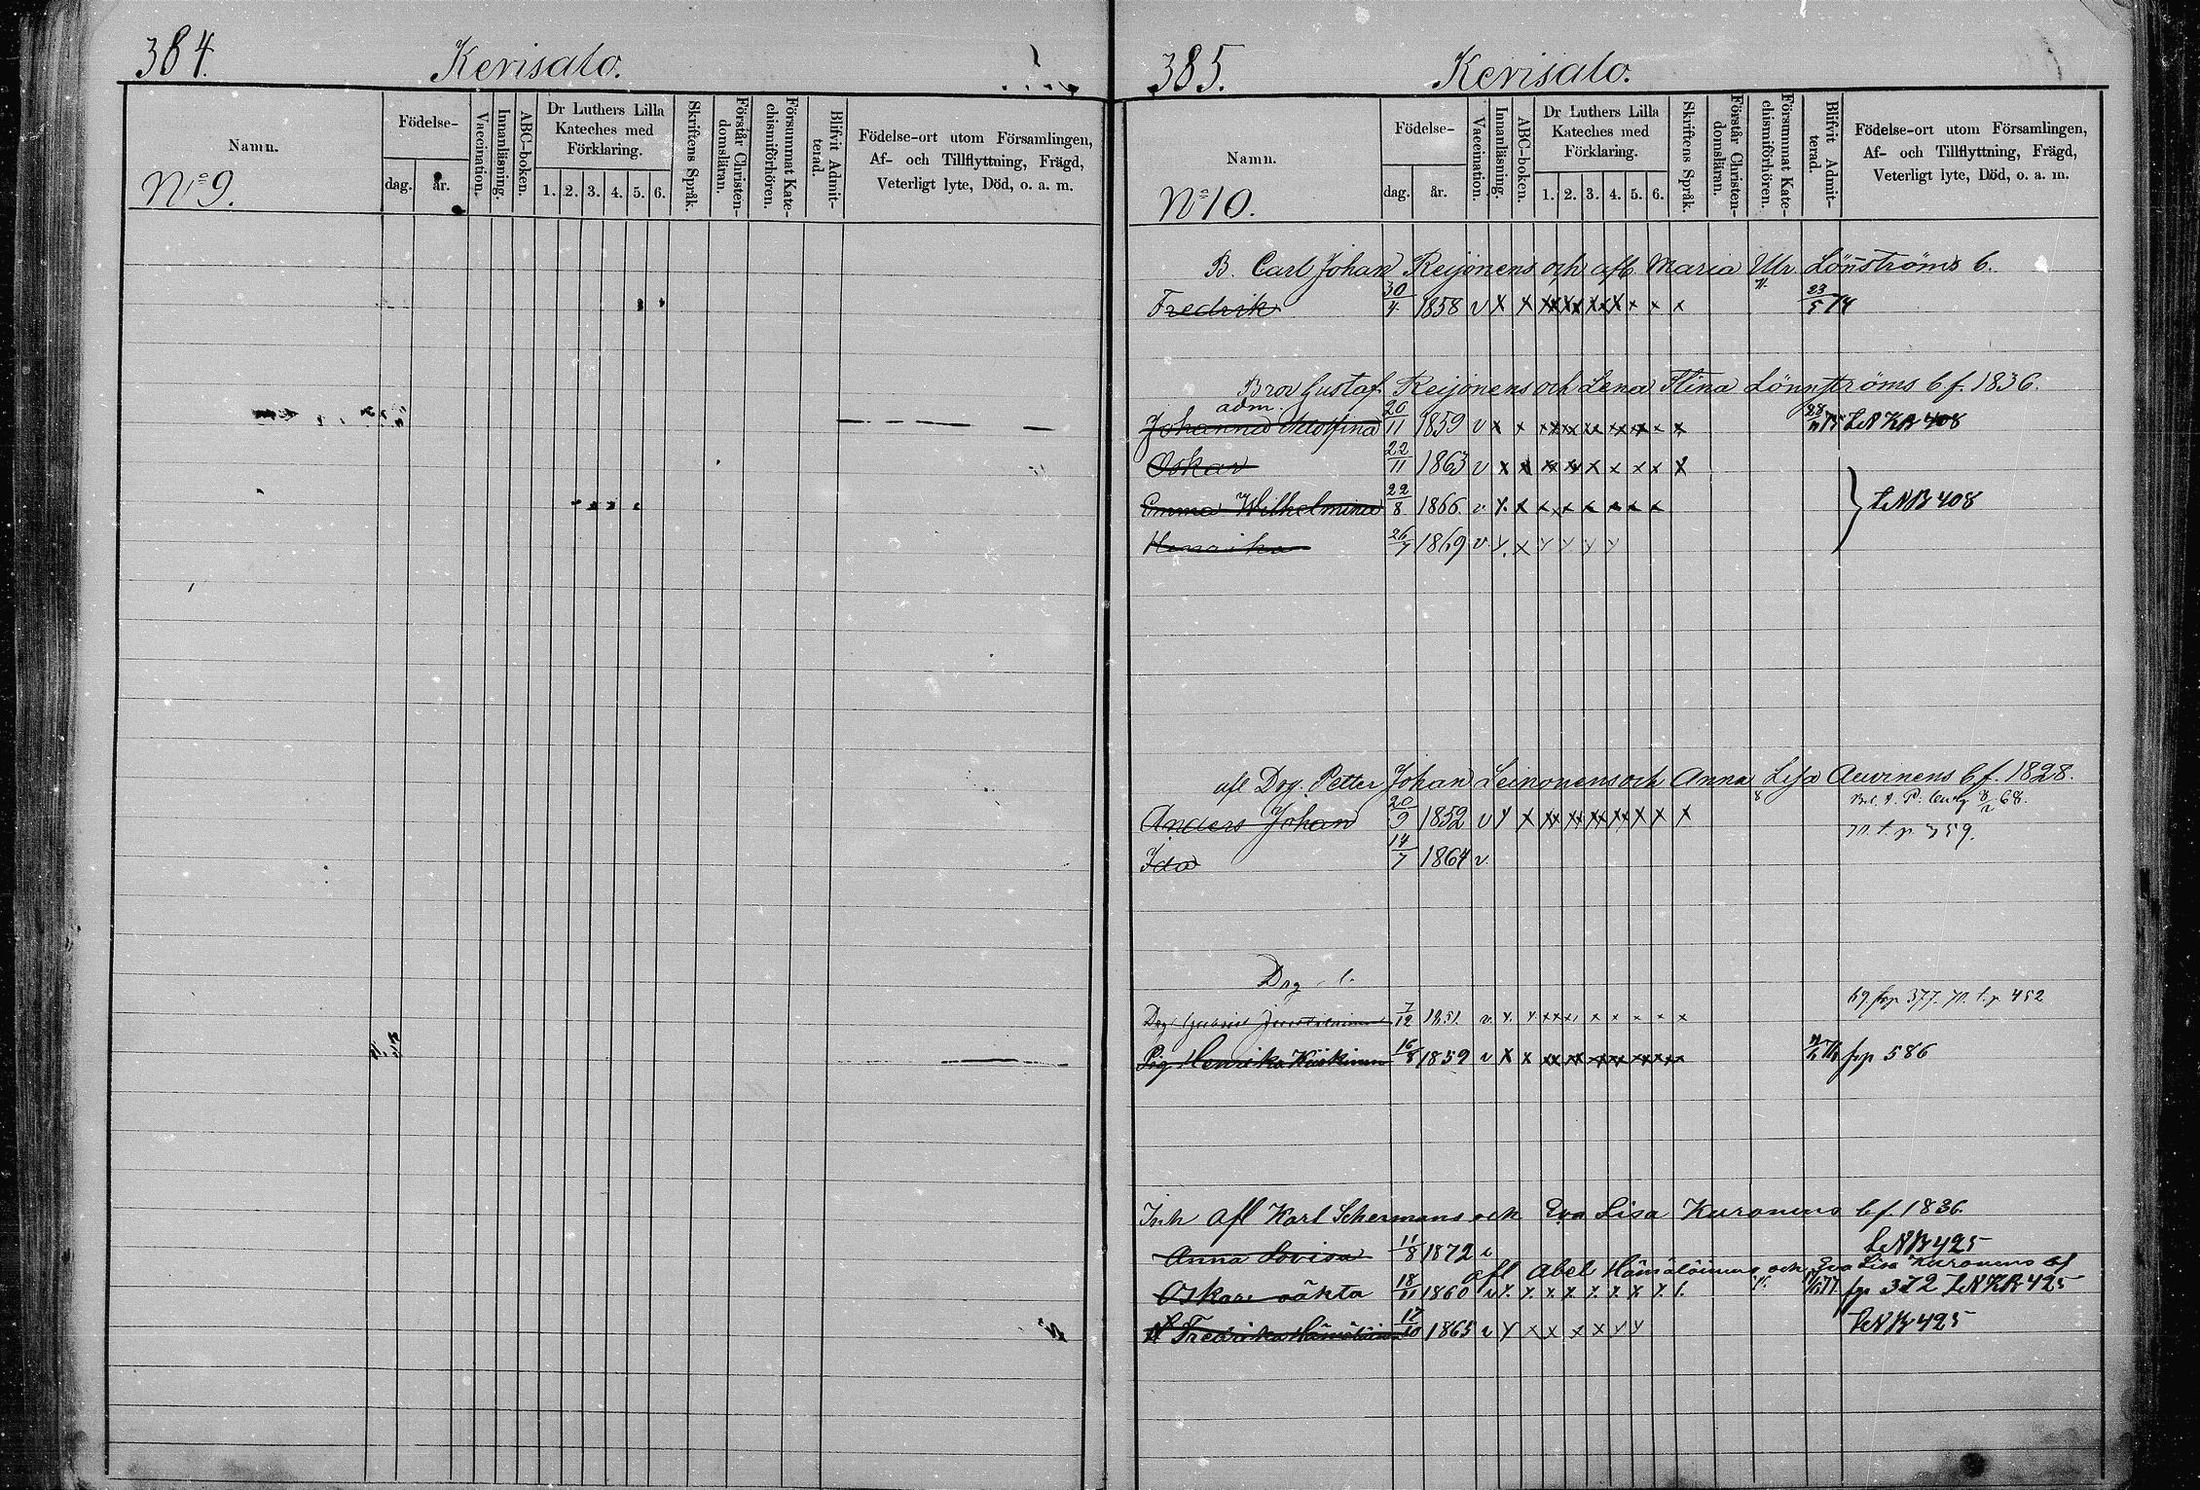 384.
Kerisalo.
Namn.
Födelse-
dag.
år.
Vaccination.
Innanläsning.
ABC-boken.
Dr Luthers Lilla
Kateches med
Förklaring.
1. 2. 3. 4. 5. 6.
Skriftens Språk.
Förstår Christen-
domsläran.
Försummat Kate-
chismiförhören.
Blifvit Admit-
terad.
Födelse-ort utom Församlingen,
Af- och Tillflyttning, Frägd,
Veterligt lyte, Död, o. a. m.
No 9.
385.
Kerisalo.
Namn.
Födelse-
dag.
år.
Vaccination.
Innanläsning.
ABC-boken.
Dr Luthers Lilla
Kateches med
Förklaring.
1. 2. 3. 4. 5. 6.
Skriftens Språk.
Förstår Christen-
domsläran.
Försummat Kate-
chismiförhören.
Blifvit Admit-
terad.
Födelse-ort utom Församlingen,
Af- och Tillflyttning, Frägd,
Veterligt lyte, Död, o. a. m.
No 10.
B. Carl Johan Reijonens och afl. Maria Ulr. Lönströms b.
Fredrik 30/4 1858 v x x xx xx xx x x x x 23/5 74
Bror Gustaf Reijonens och Lena Stina Lönnströms b f. 1836.
adm.
Johanna Adolfina 20/11 1859 v x x xx xx xx xx xx x x LNKB 408
Oskar 22/11 1863 v x x xx xx x x x x x
Emma Wilhelmina 22/8 1866 v x x x x x x x x LNB 408
Henrika 26/7 1869 v x x x x x x
afl Drg. Petter Johan Leinonens och Anna Lisa Auvinens b f. 1828.
Anders Johan 20/9 1852 v x x xx xx xx xx x x x
n. t. p. 359.
Ida 14/7 1864 v.
Drg
Drg Gabriel 7/12 1851. v. x. x xx x x x x x x x p 377. n. t. p 452
Pig Henrika 16/8 1859 v x x xx xx xx xx xx xx frp 586
Inh afl Karl Schermans och Eva Lisa Kuronens b f. 1836.
Anna Lovisa 11/8 1872 v LNB 425
afl Abel Hämäläinens och Eva Lisa Kuronens bf
Oskar oäkta 18/11 1860 v x. x. x x. x. x x x p 372 LNKB 425
Fredrika Hämäläinen 17/10 1865 v x x x x x x x LNB 425